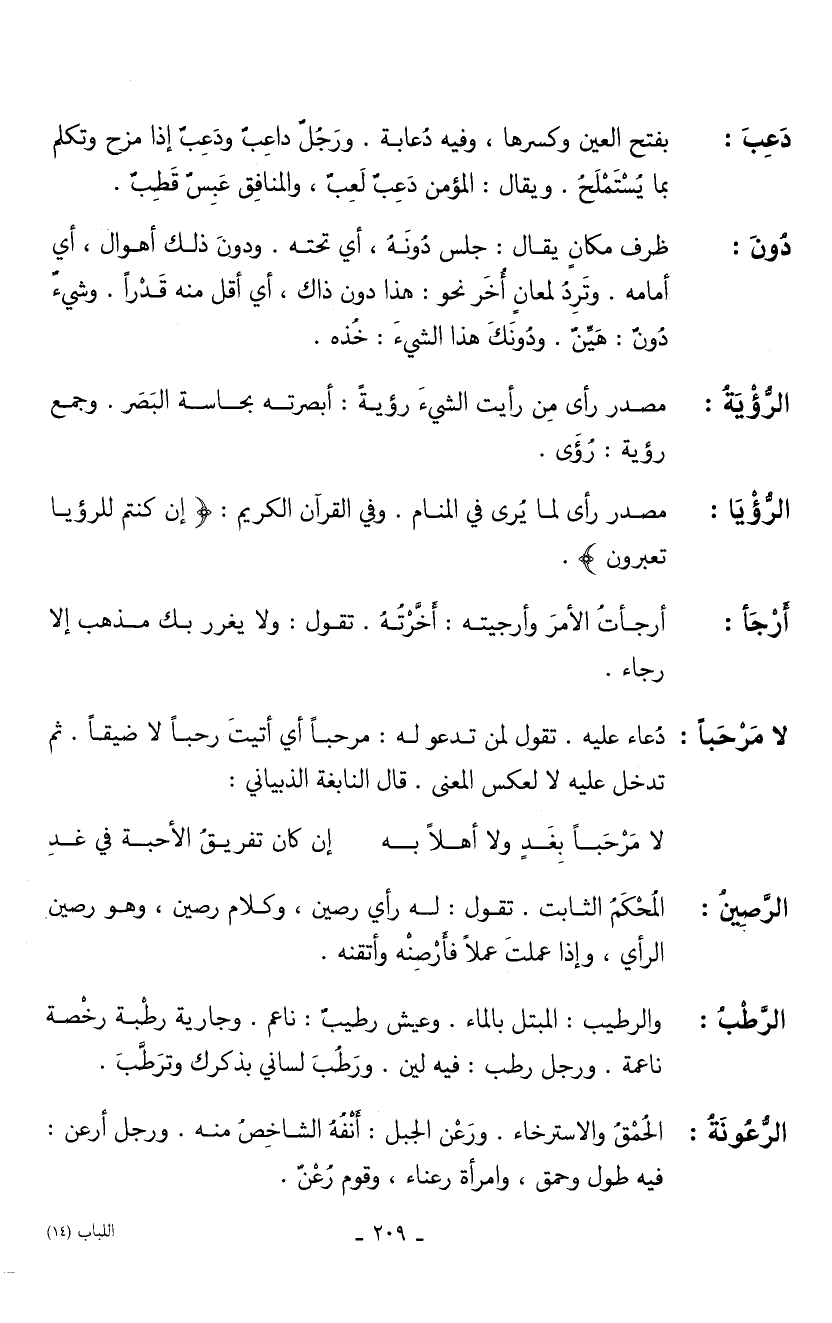 دَعِبَ : بفتح العين وكسرها ، وفيه دُعابة . ورَجُلٌ داعِبٌ ودَعِبٌ إذا مزح وتكلم
بما يُسْتَمْلَحُ . ويقال : المؤمن دَعِبٌ لَعِبٌ ، والمنافق عَبِسٌ قَطِبٌ .
دُونَ : ظرف مكانٍ يقال : جلس دُونَهُ ، أي تحته . ودونَ ذلك أهوال ، أي
أمامه . وتَرِدُ لمعانٍ أُخَر نحو : هذا دون ذاك ، أي أقل منه قَدْراً . وشيءٌ
دُونٌ : هَيِّنٌ . ودُونَكَ هذا الشيءَ : خُذه .
الرُّؤْيَةُ : مصدر رأى مِن رأيت الشيءَ رؤيةً : أبصرته بحاسة البَصَر . وجمع
رؤية : رُؤَى .
الرُّؤْيَا : مصدر رأى لما يُرى في المنام . وفي القرآن الكريم : ﴿ إن كنتم للرؤيا
تعبرون ﴾ .
أَرْجَأ : أرجأتُ الأمرَ وأرجيته : أَخَّرْتُهُ . تقول : ولا يغرر بك مذهب إلا
رجاء .
لا مَرْحَباً : دُعاء عليه . تقول لمن تدعو له : مرحباً أي أتيتَ رحباً لا ضيقاً . ثم
تدخل عليه لا لعكس المعنى . قال النابغة الذبياني :
لا مَرْحَباً بِغَدٍ ولا أهلاً به إن كان تفريقُ الأحبة في غدِ
الرَّصِينُ : المُحْكَمُ الثابت . تقول : له رأي رصين ، وكلام رصين ، وهو رصين
الرأي ، وإذا عملتَ عملاً فأَرْصِنْه وأتقنه .
الرَّطْبُ : والرطيب : المبتل بالماء . وعيش رطيبٌ : ناعم . وجارية رطْبة رخْصة
ناعمة . ورجل رطب : فيه لين . ورَطُبَ لساني بذكرك وترَطَّبَ .
الرُّعُونَةُ : الحُمْقُ والاسترخاء . ورَعْن الجبل : أَنْفُهُ الشاخِصُ منه . ورجل أرعن :
فيه طول وحمق ، وامرأة رعناء ، وقوم رُعْنٌ .
ـ ٢٠٩ ـ
اللباب (١٤)